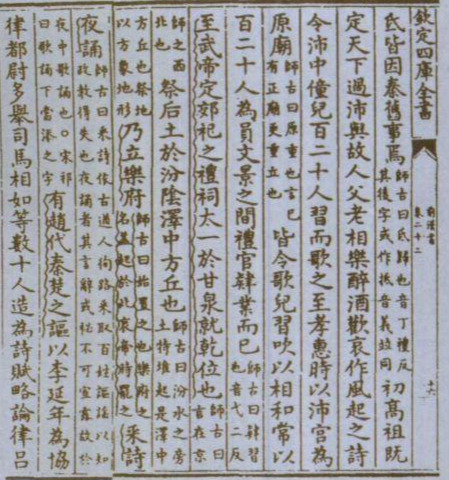 欽定四庫全書 前漢書 卷二十二
氐皆因秦舊事焉師古曰氐歸也音丁禮反其後字或作抵音義並同初高祖既
定天下過沛與故人父老相樂醉酒歡哀作風起之詩
令沛中僮兒百二十人習而歌之至孝惠時以沛宮為
原廟師古曰原重也言已有正廟更重立也皆令歌兒習吹以相和常以
百二十人為員文景之間禮官肄業而已師古曰肄習也音弋二反
至武帝定郊祀之禮祠太一於甘泉就乾位也師古曰言在京
師之西北也祭后土於汾陰澤中方丘也師古曰汾水之旁土特堆起是澤中
方丘也祭地以方象地形乃立樂府師古曰始置之也樂府之名蓋起於此哀帝時罷之采詩
夜誦師古曰采詩依古遒人徇路采取百姓謳謠以知政教得失也夜誦者其言辭或祕不可宣露故於
夜中歌誦也○宋祁曰歌誦下當添之字有趙代秦楚之謳以李延年為協
律都尉多舉司馬相如等數十人造為詩賦略論律呂